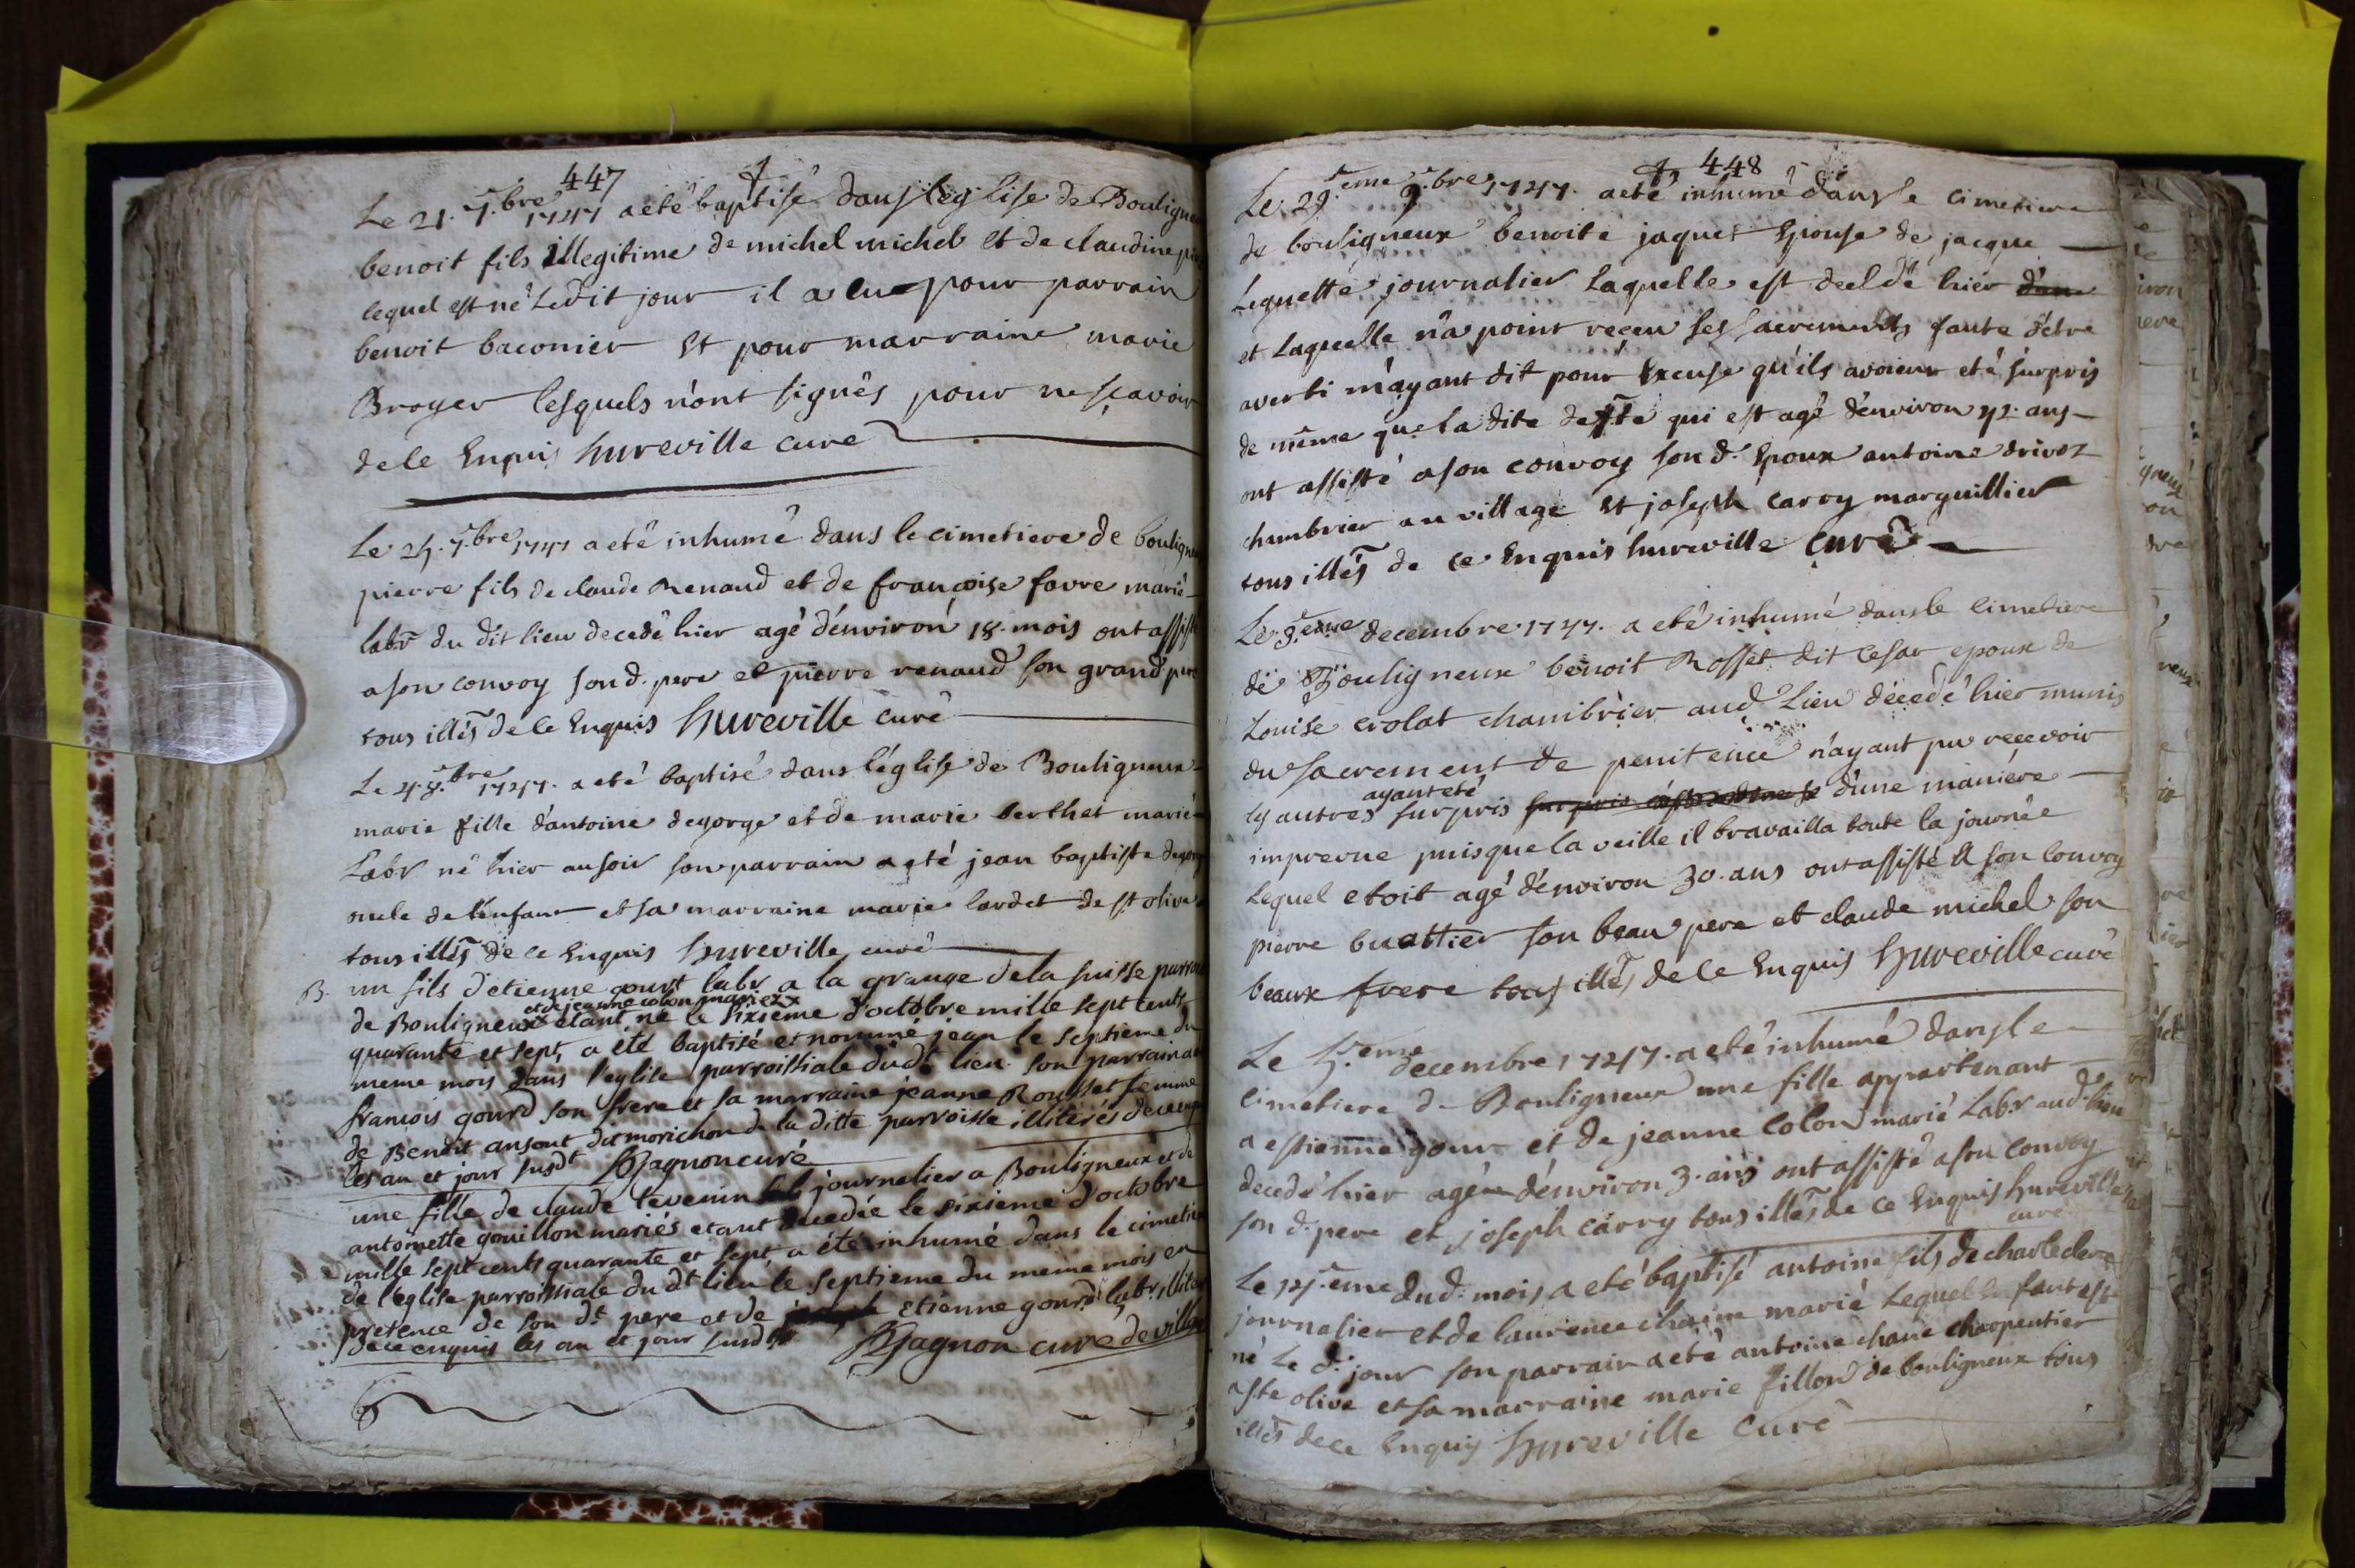 447
Le 21. 7.bre 1747 a eté baptisé dans leglise de Bouligne
benoit fils illegitime de michel michel et de claudine
lequel est né Ledit jour il a eu pour parrain
benoit baconier et pour marraine marie
Broyer lesquels n'ont signés pour ne sçavoir
de ce Enquis hureville curé
Le 24. 7.bre 1747 a eté inhumé dans le cimetiere de bouligne
pierre fils de claude Renaud et de françoise favre marié
labr du dit lieu decedé hier agé d'environ 18. mois ont assisté
a son convoy son d. pere et pierre renaud son grand pere
tous illés de ce Enquis hureville curé
Le 4. 8.bre 1747. a eté baptisé dans l'église de Bouligneux
marie fille d'antoine degorge et de marie berthet marié
Labr né hier au soir son parrain a eté jean baptiste degorge
oncle de l'enfant et sa marraine marie lardet de st olive
tous illés de ce Enquis hureville curé
B. un fils d'etienne gourd labr a la grange de la suisse parroi
et de jeanne colon mariez x
de Bouligneux x étant né le sixieme d'octobre mille sept cents
quarante et sept, a été baptisé et nommé jean le septieme du
meme mois dans l'eglise parroissiale dudt lieu son parrain a
francois gourd son frere et sa marraine jeanne Rousset femme
de Benoit ansont dit morichon de la ditte parroisse illiterés de ce enq
les an et jour susdt Gagnon curé
une fille de claude tevenin journalier a Bouligneux et de
antoinette gouillon mariés etant decedée le sixieme d'octobre
mille sept cents quarante et sept, a été inhumé dans le cimetie
de l'eglise parroissiale du dt lieu le septieme du meme mois en
presence de son dt pere et de etienne gourd labr illite
de ce enquis les an et jour susdts Gagnon curé de villa
448
Le 29.eme 9.bre 1747. a eté inhumé dans le cimetiere
de bouligneux benoite jaquet Epouse de jacque
Lequette journalier Laquelle est decedé hier d'une
et Laquelle n'a point reçeu ses sacrements faute d'etre
averti m'ayant dit pour Excuse qu'ils avoient eté surpris
de même que la dite deffte qui est agé d'environ 42. ans
ont assisté a son convoy son d. Epoux antoine drivoz
chambrier au village et joseph carry marguillier
tous illés de ce Enquis hureville Curé
Le 3.eme decembre 1747. a eté inhumé dans le cimetiere
de Bouligneux benoit Rosset dit cesar epoux de
Louise crolat chambrier aud Lieu décedé hier munis
du sacrement de penitence n'ayant pu recevoir
ayant eté
les autres surpris d'une maniére
imprevue puisque la veille il travailla toute la journée
Lequel etoit agé d'environ 30. ans ont assisté a son Convoy
pierre buattier son beau pere et claude michel son
beaux frere tous illés de ce Enquis hureville curé
Le 5.eme decembre 1747. a eté inhumé dans le
cimetiere de Bouligneux une fille appartenant
a estienne gour et de jeanne Colon marié Labr aud. lieu
decedé hier agée d'environ 3. ans ont assisté a son convoy
son d. pere et joseph carry tous illés de ce Enquis hureville
curé
Le 14.eme dud. mois a eté baptisé antoine fils de charle clere
journalier et de laurence chaine marié Lequel Enfant est
né Le d. jour son parrain a eté antoine chane charpentier
a ste olive et sa marraine marie fillon de bouligneux tous
illés de ce Enquis hureville Curé